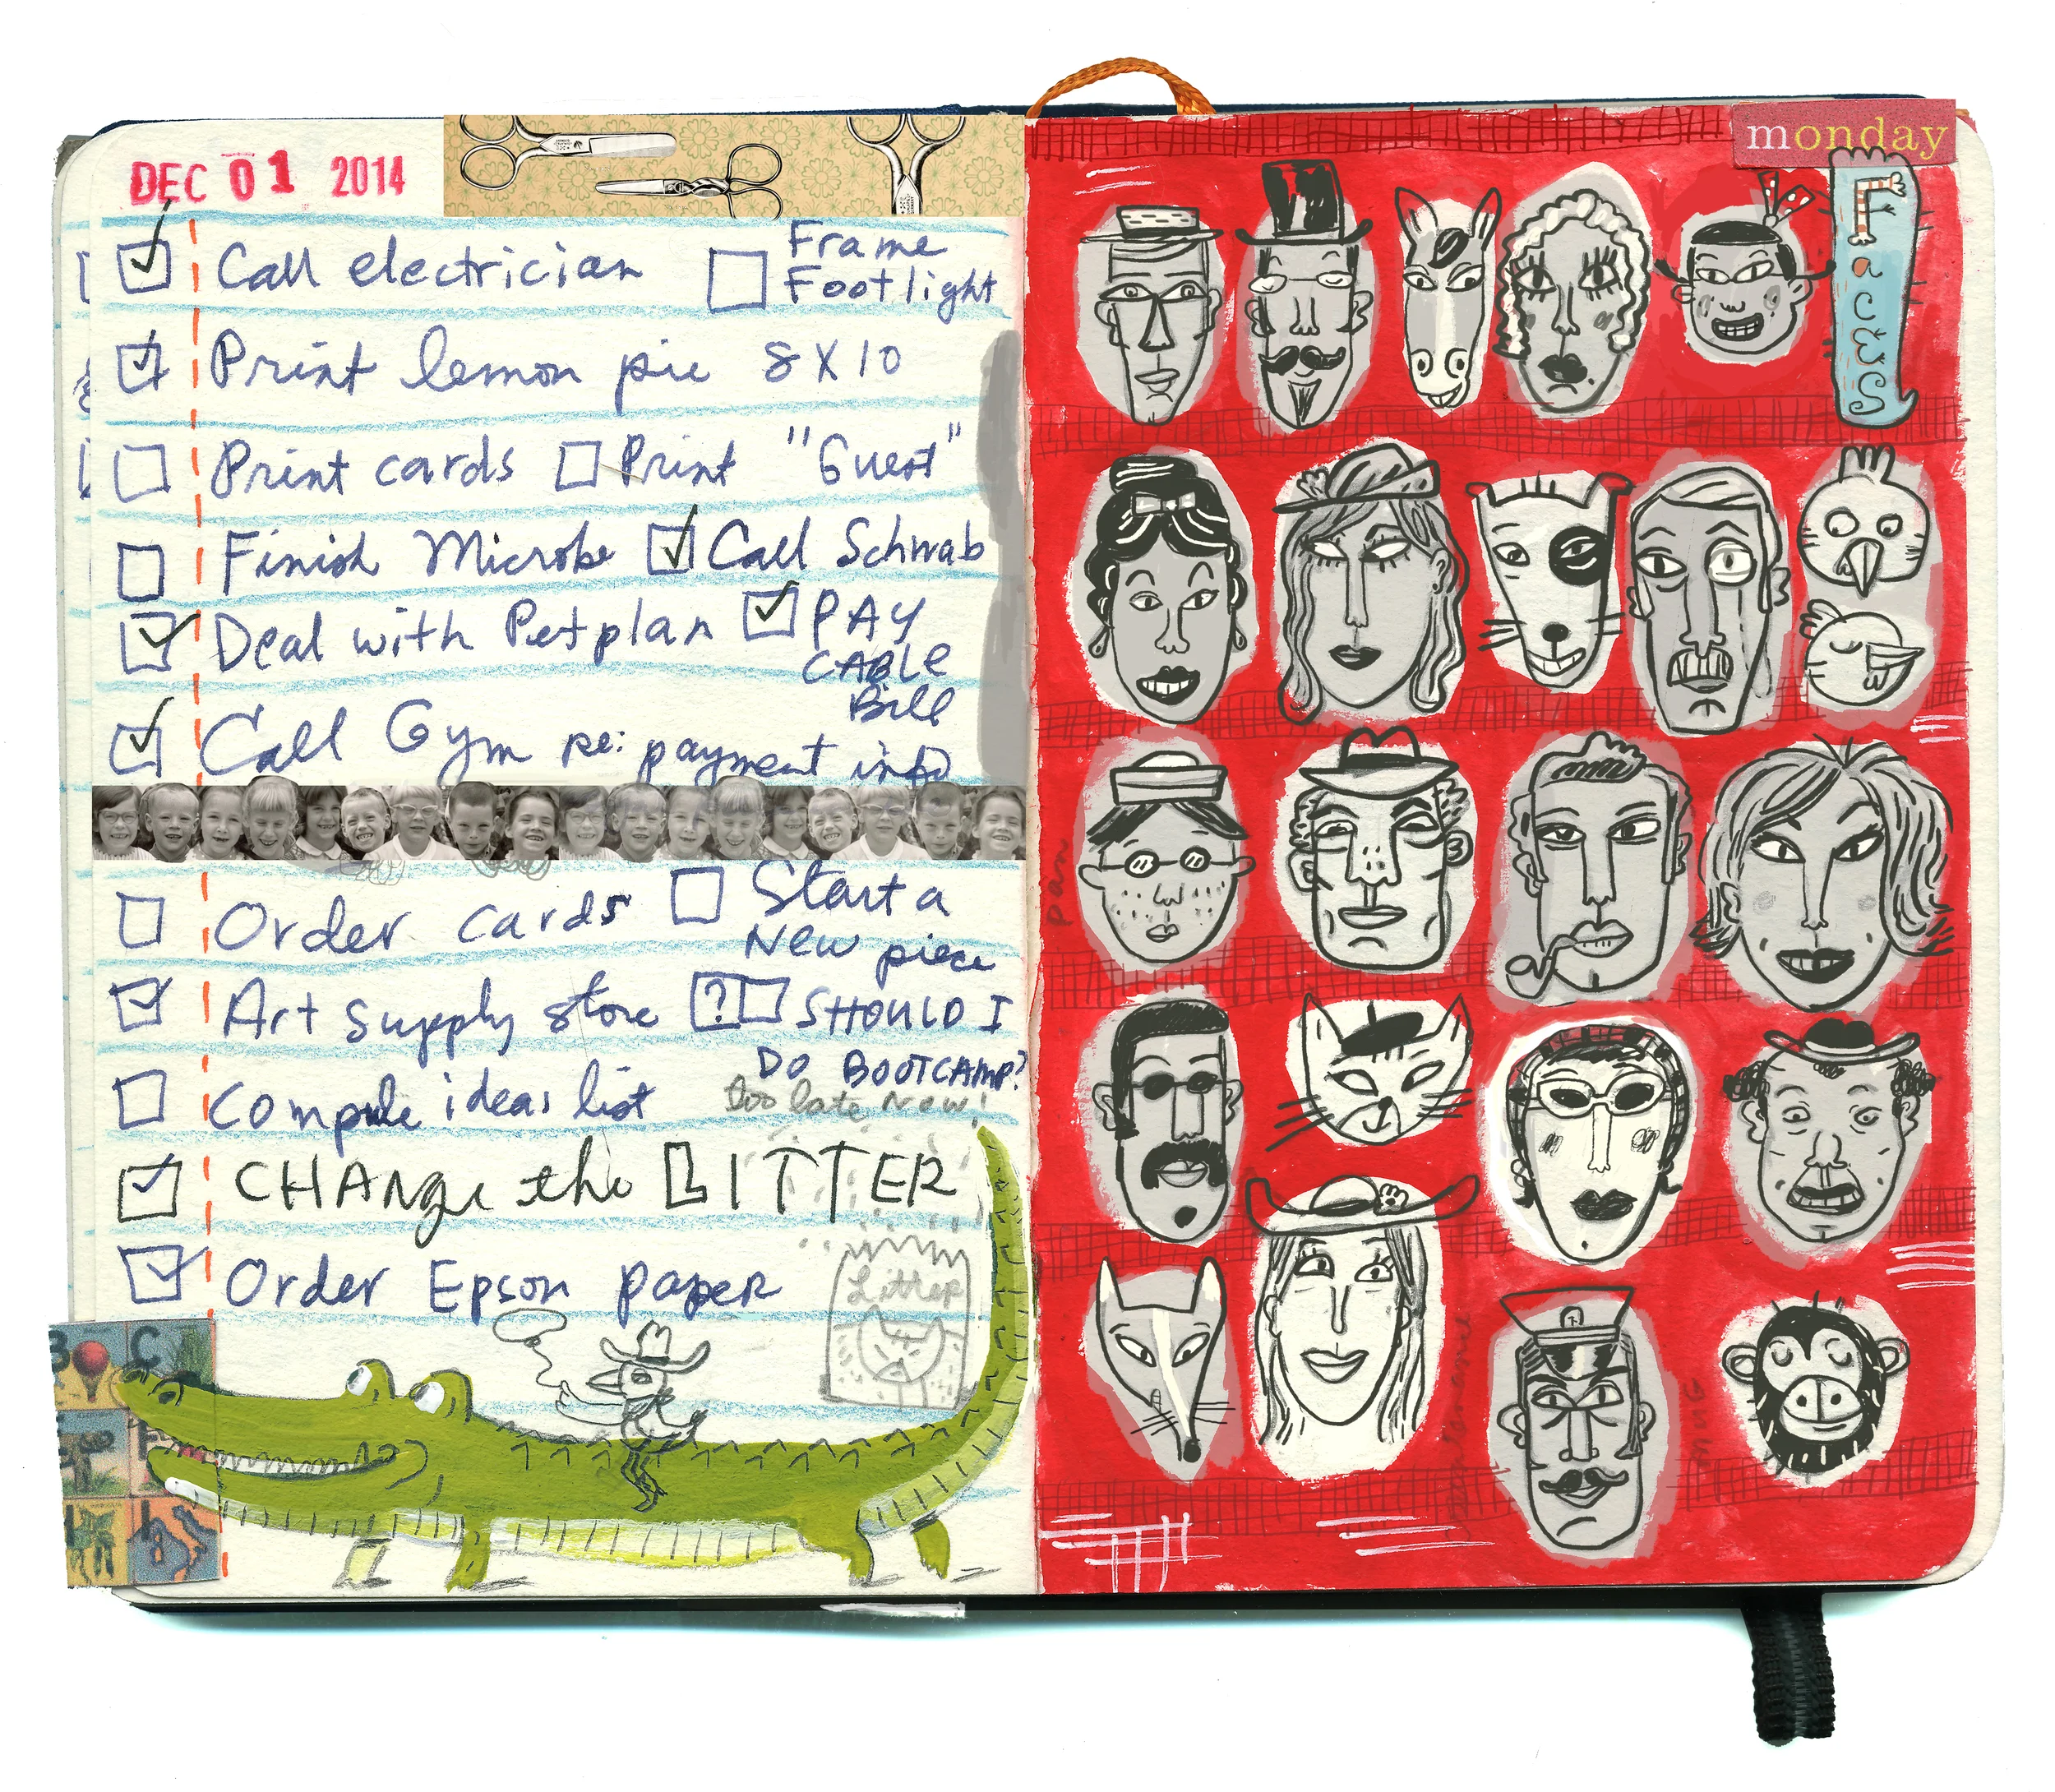 DEC 01 2014
monday
Call electrician
Frame
Footlight
Print lemon pie 8X10
Print cards
Print "Guest"
Finish Microbe
Call Schwab
Deal with Petplan
PAY
CABLE
Bill
Call Gym re: payment info
Order cards
Start a
New piece
Art supply store
? SHOULD I
DO BOOTCAMP?
too late now!
Compile ideas list
CHANGE the LITTER
Order Epson paper
Litter
B C
FacEs
pan
mug